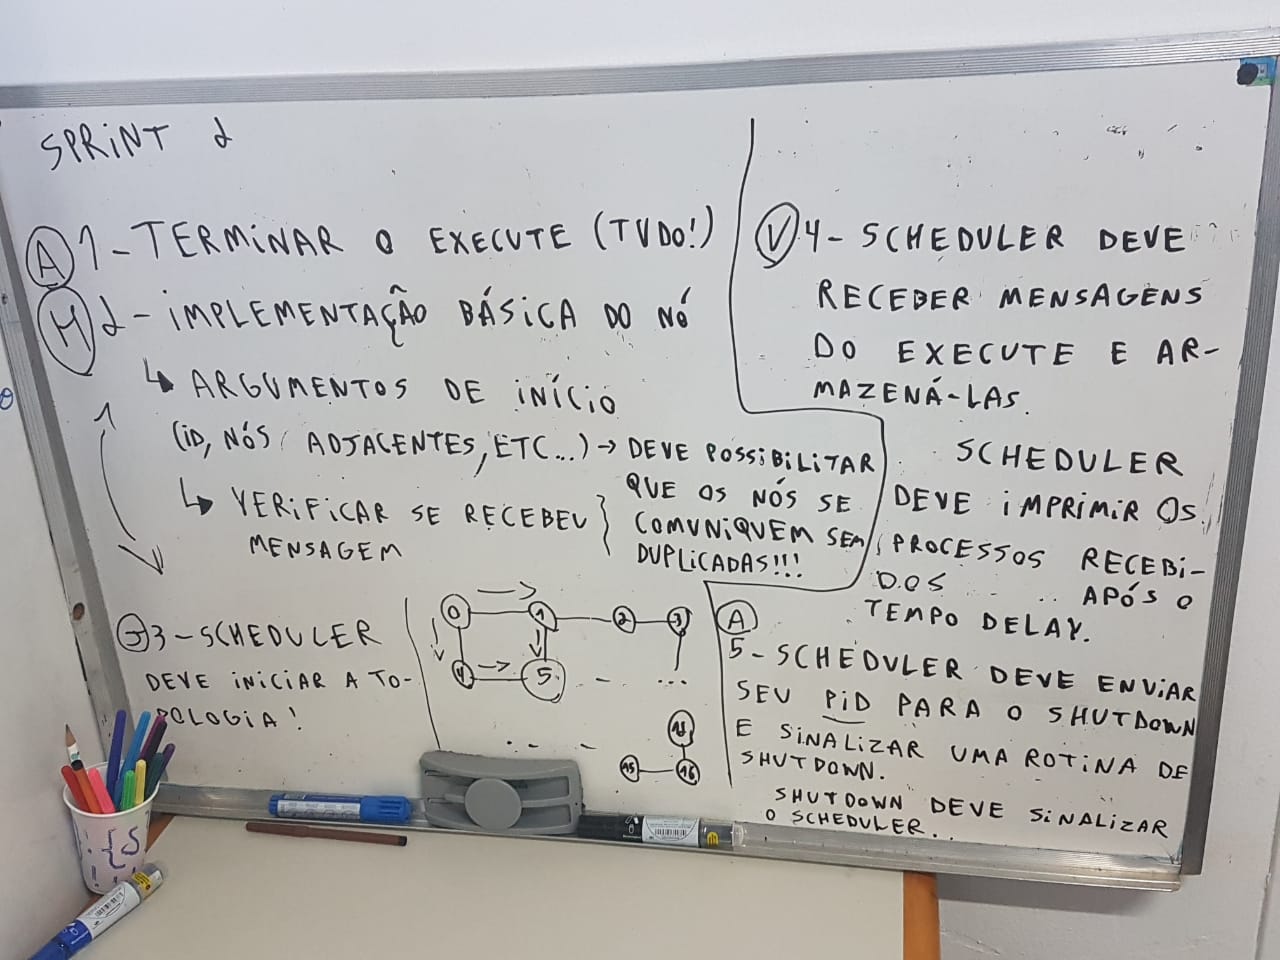 SPRINT 2
A 1 - TERMINAR O EXECUTE (TUDO!)
M 2 - IMPLEMENTAÇÃO BÁSICA DO NÓ
↳ ARGUMENTOS DE INÍCIO
(ID, NÓS ADJACENTES, ETC...) → DEVE POSSIBILITAR
QUE OS NÓS SE
COMUNIQUEM SEM
DUPLICADAS!!!
↳ VERIFICAR SE RECEBEU
MENSAGEM
3 - SCHEDULER
DEVE INICIAR A TO-
POLOGIA!
0 1 2 3
4 5 - - ...
11
15 16
V 4 - SCHEDULER DEVE
RECEBER MENSAGENS
DO EXECUTE E AR-
MAZENÁ-LAS.
SCHEDULER
DEVE IMPRIMIR OS
PROCESSOS RECEBI-
DOS APÓS O
TEMPO DELAY.
A
5 - SCHEDULER DEVE ENVIAR
SEU PID PARA O SHUTDOWN
E SINALIZAR UMA ROTINA DE
SHUTDOWN.
SHUTDOWN DEVE SINALIZAR
O SCHEDULER..